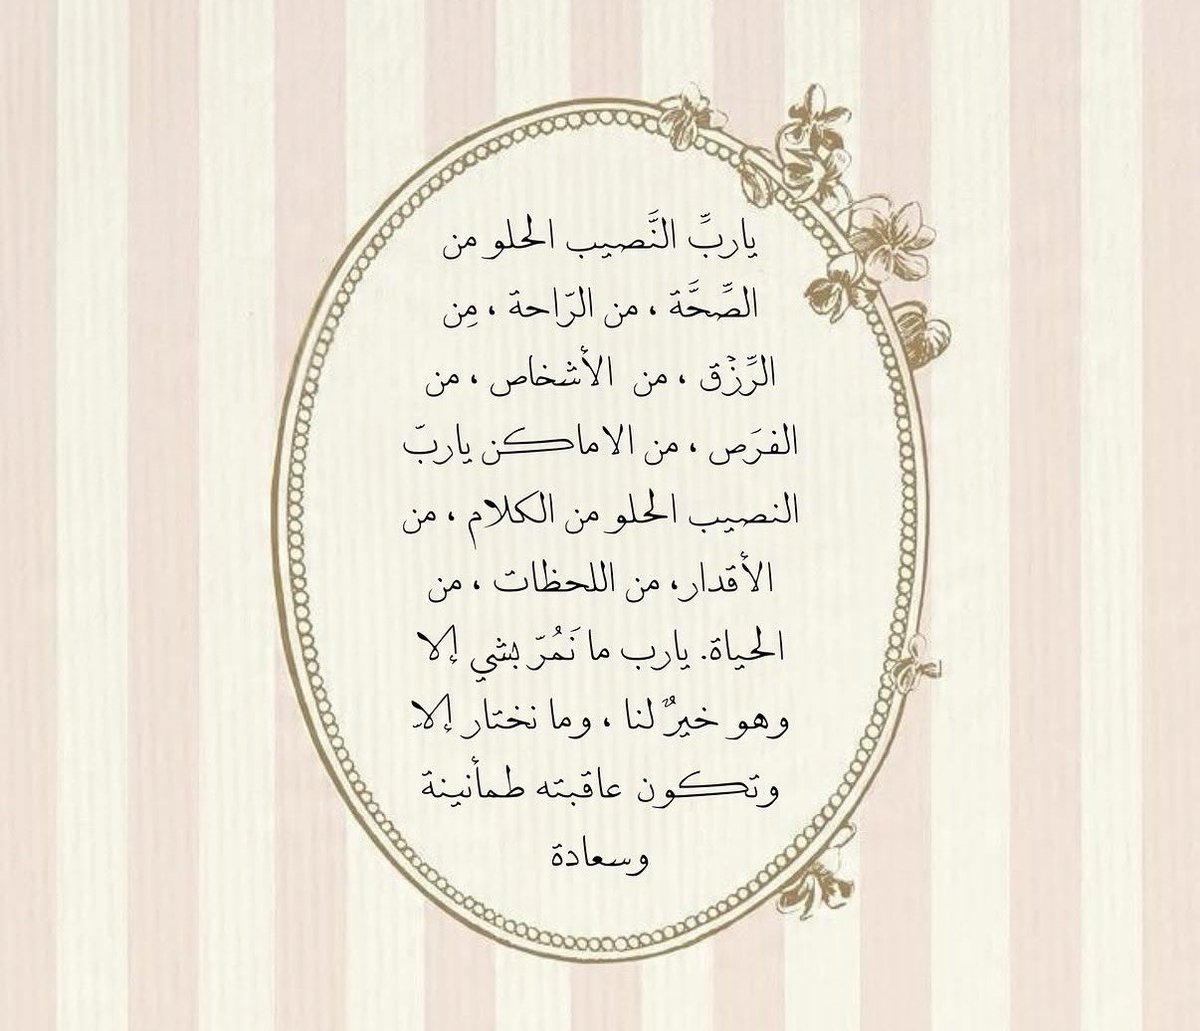 ياربِّ النَّصيب الحلو من
الصِّحَّة ، من الرّاحة ، مِن
الرِّزْق ، من الأشخاص ، من
الفرَص ، من الاماكن ياربّ
النصيب الحلو من الكلام ، من
الأقدار، من اللحظات ، من
الحياة. يارب ما نَمُرّ بشي إلا
وهو خيرٌ لنا ، وما نختار إلاّ
وتكون عاقبته طمأنينة
وسعادة